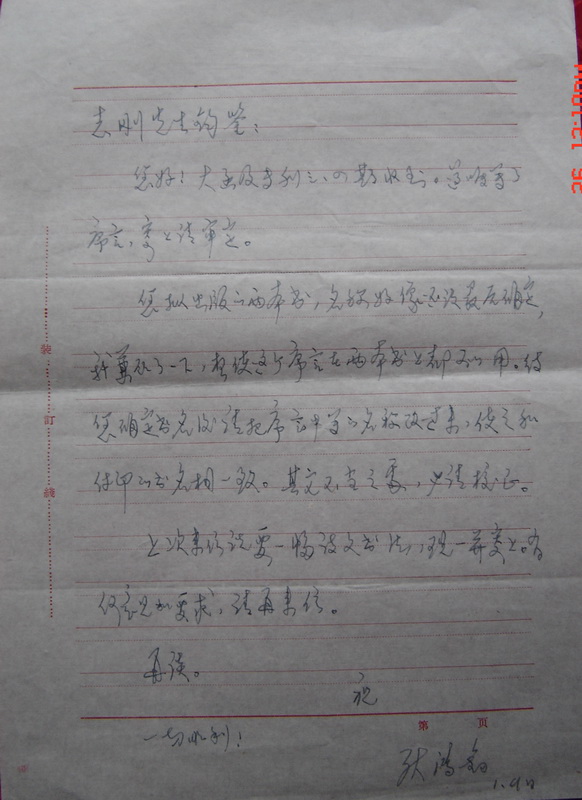 志刚先生钧鉴:
您好!大函及专利三、四期收到。草草写了
序言,寄上请审定。
您拟出版的两本书,名称好像还没最后确定,
我草拟了一下,想使这个序言在两本书上都可以用。待
您确定书名后请把序言中的名称改过来,使之和
付印的书名相一致。其文不当之处,必请校正。
上次来信说要一幅该文书法,现一并寄上。有
何意见和要求,请再来信。
再谈。
祝
一切顺利!
装
订
线
第 页
1.9日